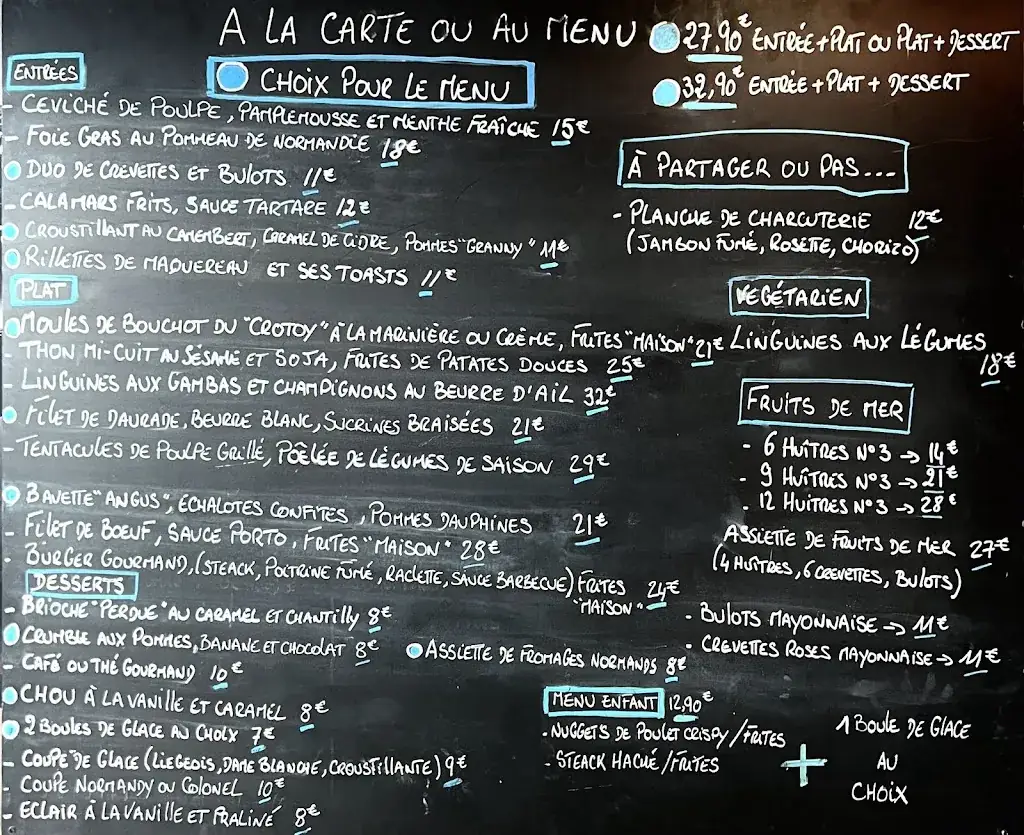 A LA CARTE OU AU MENU
27,90€ ENTRÉE+PLAT OU PLAT+DESSERT
32,90€ ENTRÉE+PLAT + DESSERT
CHOIX POUR LE MENU
ENTRÉES
- CEVICHÉ DE POULPE, PAMPLEMOUSSE ET MENTHE FRAÎCHE 15€
- FOIE GRAS AU POMMEAU DE NORMANDIE 18€
DUO DE CREVETTES ET BULOTS 11€
- CALAMARS FRITS, SAUCE TARTARE 12€
CROUSTILLANT AU CAMEMBERT, CARAMEL DE CIDRE, POMMES "GRANNY" 11€
RILLETTES DE MAQUEREAU ET SES TOASTS 11€
PLAT
MOULES DE BOUCHOT DU "CROTOY" À LA MARINIÈRE OU CRÈME, FRITES "MAISON" 21€
- THON MI-CUIT AU SÉSAME ET SOJA, FRITES DE PATATES DOUCES 25€
- LINGUINES AUX GAMBAS ET CHAMPIGNONS AU BEURRE D'AIL 32€
FILET DE DAURADE, BEURRE BLANC, SUCRINES BRAISÉES 21€
- TENTACULES DE POULPE GRILLÉ, POÊLÉE DE LÉGUMES DE SAISON 29€
BAVETTE "ANGUS", ECHALOTES CONFITES, POMMES DAUPHINES 21€
- FILET DE BOEUF, SAUCE PORTO, FRITES "MAISON" 28€
- BURGER GOURMAND, (STEACK, POITRINE FUMÉ, RACLETTE, SAUCE BARBECUE) FRITES "MAISON" 24€
DESSERTS
- BRIOCHE "PERDUE" AU CARAMEL ET CHANTILLY 8€
CRUMBLE AUX POMMES, BANANE ET CHOCOLAT 8€
- CAFÉ OU THÉ GOURMAND 10€
CHOU À LA VANILLE ET CARAMEL 8€
2 BOULES DE GLACE AU CHOIX 7€
- COUPE DE GLACE (LIEGEOIS, DAME BLANCHE, CROUSTILLANTE) 9€
- COUPE NORMANDY OU COLONEL 10€
- ECLAIR À LA VANILLE ET PRALINÉ 8€
ASSIETTE DE FROMAGES NORMANDS 8€
À PARTAGER OU PAS...
- PLANCHE DE CHARCUTERIE 12€
(JAMBON FUMÉ, ROSETTE, CHORIZO)
VEGÉTARIEN
LINGUINES AUX LÉGUMES
18€
FRUITS DE MER
- 6 HUÎTRES N°3 → 14€
- 9 HUÎTRES N°3 → 21€
- 12 HUÎTRES N°3 → 28€
ASSIETTE DE FRUITS DE MER 27€
(4 HUÎTRES, 6 CREVETTES, BULOTS)
- BULOTS MAYONNAISE → 11€
- CREVETTES ROSES MAYONNAISE → 11€
MENU ENFANT 12,90€
- NUGGETS DE POULET CRISPY / FRITES
- STEACK HACHÉ / FRITES
+
1 BOULE DE GLACE
AU
CHOIX